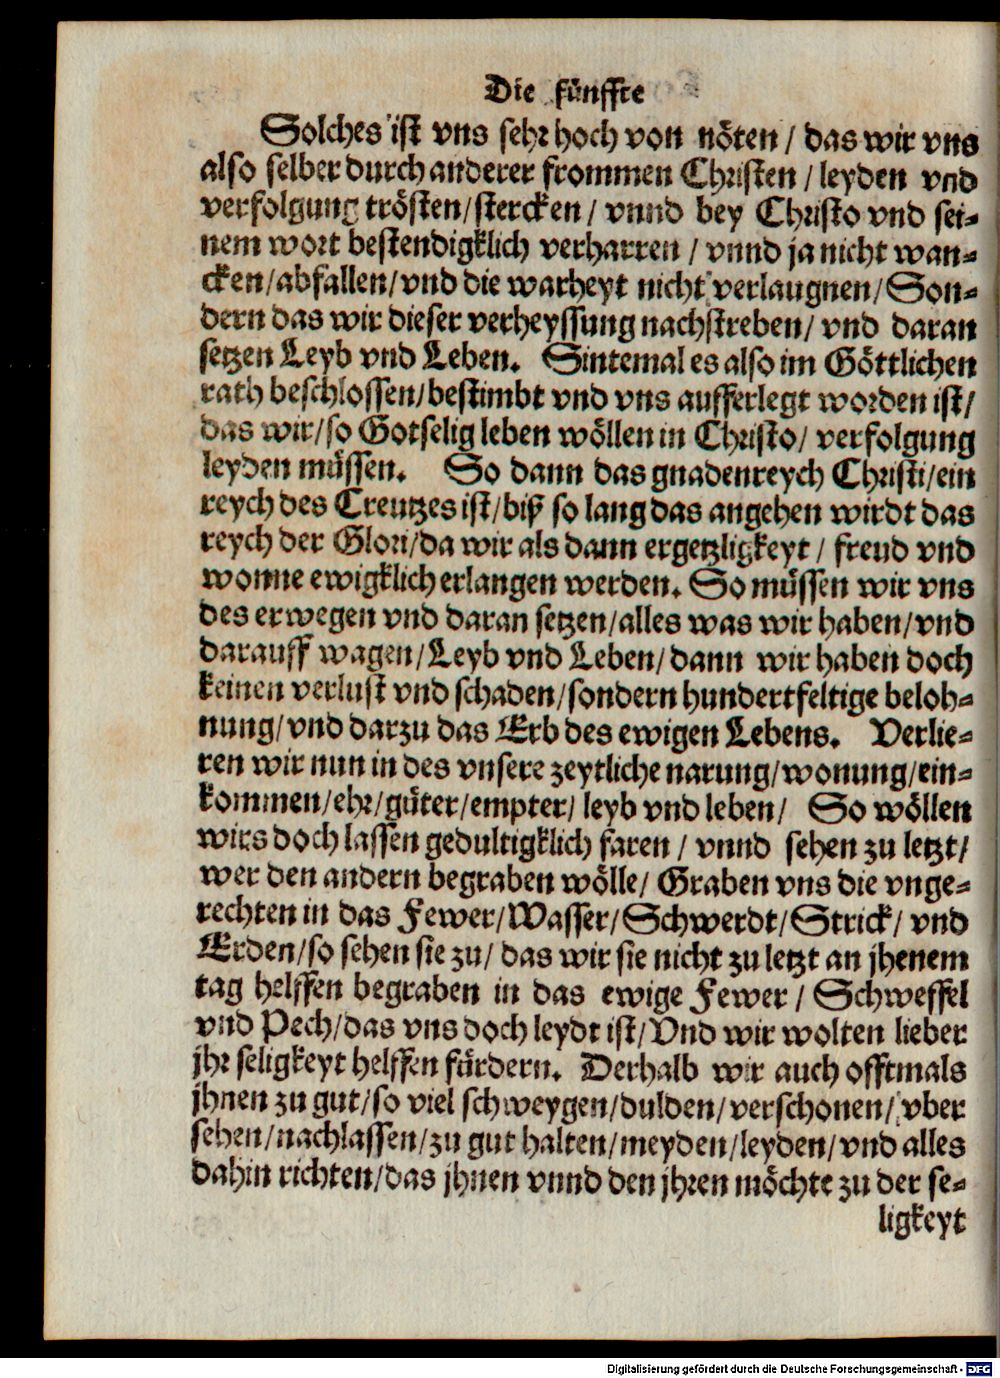 Die fünffte
Solches ist vns sehr hoch von nöten / das wir vns
also selber durch anderer frommen Christen / leyden vnd
verfolgung trösten/stercken / vnnd bey Christo vnd sei-
nem wort bestendigklich verharren / vnnd ja nicht wan-
cken/abfallen/vnd die warheyt nicht verlaugnen/Son-
dern das wir dieser verheyssung nachstreben/ vnd daran
setzen Leyb vnd Leben. Sintemal es also im Göttlichen
rath beschlossen/bestimbt vnd vns aufferlegt worden ist/
das wir/so Gotselig leben wöllen in Christo/ verfolgung
leyden müssen. So dann das gnadenreych Christi/ein
reych des Creutzes ist/biß so lang das angehen wirdt das
reych der Glori/da wir als dann ergetzligkeyt / freud vnd
wonne ewigklich erlangen werden. So müssen wir vns
des erwegen vnd daran setzen/alles was wir haben/vnd
darauff wagen/Leyb vnd Leben/dann wir haben doch
keinen verlust vnd schaden/sondern hundertfeltige beloh-
nung/vnd darzu das Erb des ewigen Lebens. Verlie-
ren wir nun in des vnsere zeytliche narung/wonung/ein-
kommen/ehr/güter/empter/ leyb vnd leben/ So wöllen
wirs doch lassen gedultigklich faren / vnnd sehen zu letzt/
wer den andern begraben wölle/ Graben vns die vnge-
rechten in das Fewer/Wasser/Schwerdt/Strick/ vnd
Erden/so sehen sie zu/ das wir sie nicht zu letzt an jhenem
tag helffen begraben in das ewige Fewer / Schweffel
vnd Pech/das vns doch leydt ist/Vnd wir wolten lieber
jhr seligkeyt helffen fürdern. Derhalb wir auch offtmals
jhnen zu gut/so viel schweygen/dulden/verschonen/ vber
sehen/nachlassen/zu gut halten/meyden/leyden/vnd alles
dahin richten/das jhnen vnnd den jhren möchte zu der se-
ligkeyt
Digitalisierung gefördert durch die Deutsche Forschungsgemeinschaft - DFG